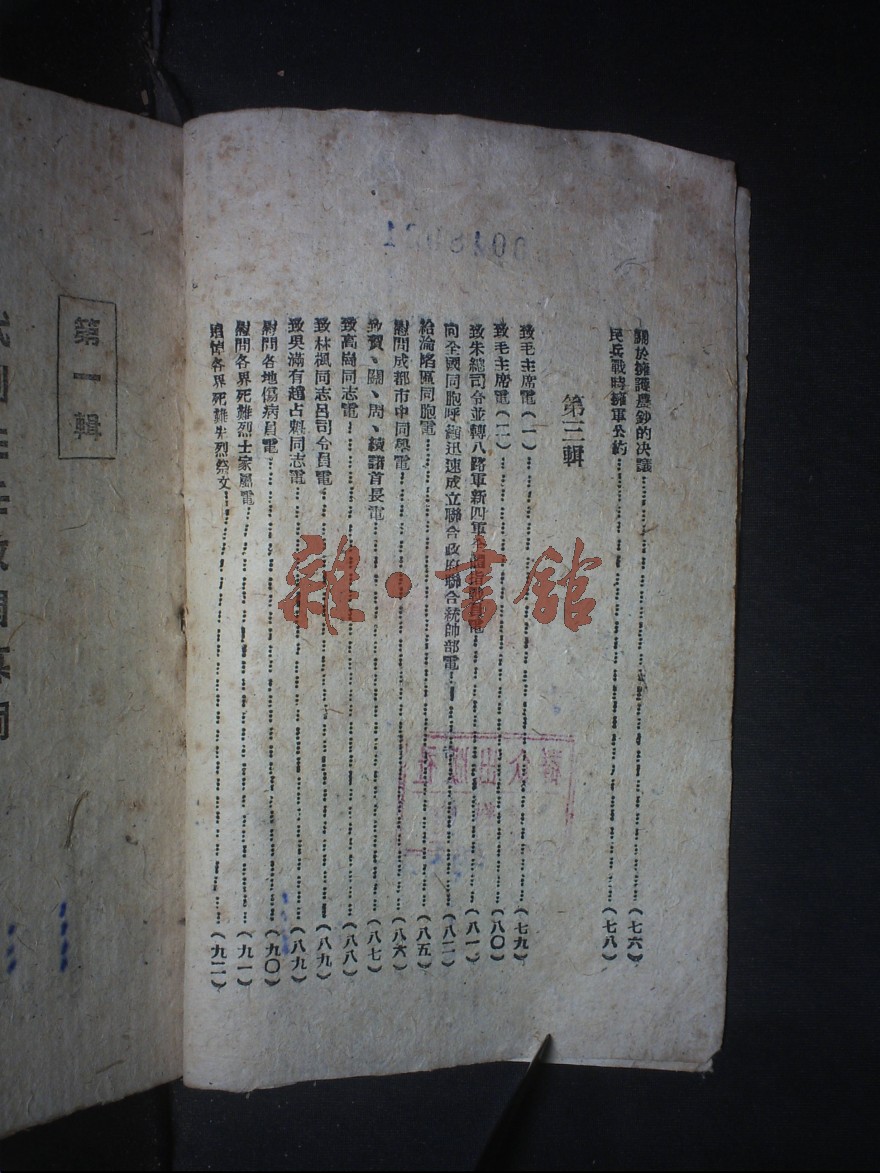 關於擁護農鈔的決議(七六)
民兵戰時擁軍公約(七八)
第三輯
致毛主席電(一)(七九)
致毛主席電(二)(八〇)
致朱總司令並轉八路軍新四軍全國指戰員電(八一)
向全國同胞呼籲迅速成立聯合政府聯合統帥部電(八二)
給淪陷區同胞電(八五)
慰問成都市中同學電(八六)
致賀、關、周、續諸首長電(八七)
致高崗同志電(八八)
致林楓同志呂司令員電(八九)
致吳滿有趙占魁同志電(八九)
慰問各地傷病員電(九〇)
慰問各界死難烈士家屬電(九一)
追悼各界死難先烈祭文(九二)
第一輯
雜·書館
群众出版社